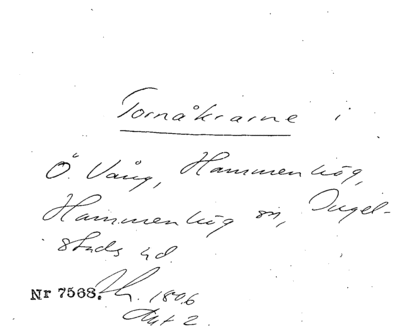 Tornåkrarne i
Ö. Vång, Hammenhög,
Hammenhög sn, Ingel-
stads hd.
Nr 7568. 1806
Akt 2.